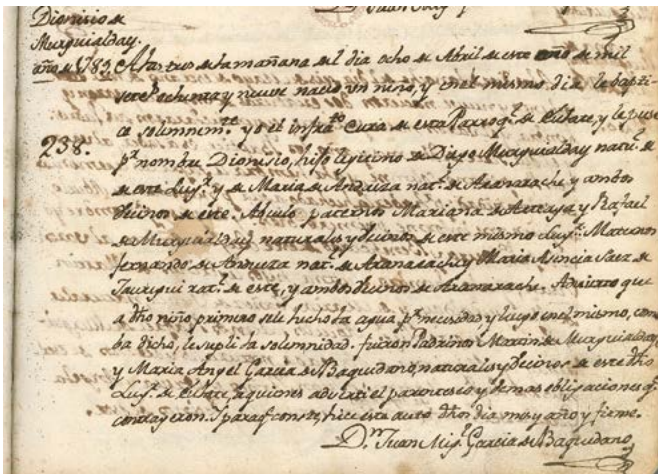 Dionisio de
Murguialday.
año de 1789. A las tres de la mañana del dia ocho de Abril de este año de mil
setec.s ochenta y nueve nacio un niño, y en el mismo dia le bapti-
ce solemnem.te yo el infra.to Cura de esta Parroq.l de Eulate, y le puse
238. p.r nombre Dionisio, hijo legitimo de Diego Murguialday nat.l de
de este Lug.r y de Maria de Andueza nat.l de Aranarache y ambos
vecinos de este. Abuelos paternos Mariana de y Rafael
de Murguialday naturales y vecinos de este mismo Lug.r: Maternos
fernando de Andueza nat.l de Aranarache y Maria Asencia Saez de
Jauregui nat.l de este, y ambos vecinos de Aranarache. Advierto que
a dho niño primero se le hechó la agua p.r necesidad y luego en el mismo, como
ba dicho, le supli la solemnidad. fueron Padrinos Martin de Murguialday,
y Maria Angel Garcia de Baquedano, naturales y vecinos de este dho
Lug.r de Eulate, a quienes adverti el parentesco y demas obligaciones q.e
contrayeron. Y para q.e conste, hice este auto dhos dia mes y año y firme.
D.n Juan Mig.l Garcia de Baquedano